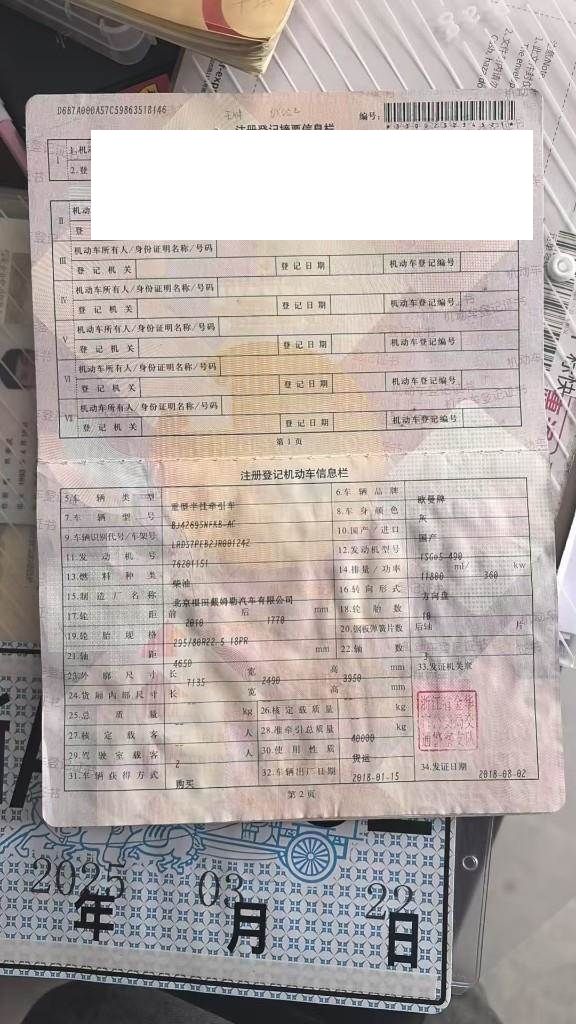 D687A000A57C59863518146
编号:
注册登记摘要信息栏
I
1.机动
2.登
II
机动
登
III 机动车所有人/身份证明名称/号码
登记机关 登记日期 机动车登记编号
IV 机动车所有人/身份证明名称/号码
登记机关 登记日期 机动车登记编号
V 机动车所有人/身份证明名称/号码
登记机关 登记日期 机动车登记编号
VI 机动车所有人/身份证明名称/号码
登记机关 登记日期 机动车登记编号
VII 机动车所有人/身份证明名称/号码
登记机关 登记日期 机动车登记编号
第1页
注册登记机动车信息栏
5.车辆类型 重型半挂牵引车 6.车辆品牌 欧曼牌
7.车辆型号 BJ4269SNFKB-AC 8.车身颜色 灰
9.车辆识别代号/车架号 LRDS7PEB2JR001242 10.国产/进口 国产
11.发动机号 76201151 12.发动机型号
13.燃料种类 柴油 14.排量/功率 11800 ml/ 360 kw
15.制造厂名称 北京福田戴姆勒汽车有限公司 16.转向形式 方向盘
17.轮距 前 2010 后 1770 mm 18.轮胎数 10
19.轮胎规格 295/80R22.5 18PR 20.钢板弹簧片数 后轴 片
21.轴距 4650 mm 22.轴数
23.外廓尺寸 长 7135 宽 2490 高 3950 mm 33.发证机关章
24.货厢内部尺寸 长 宽 高 mm
25.总质量 kg 26.核定载质量 kg
27.核定载客 人 28.准牵引总质量 40000 kg
29.驾驶室载客 2 人 30.使用性质 货运
31.车辆获得方式 购买 32.车辆出厂日期 2018-01-15 34.发证日期 2018-08-02
第2页
2025年 03月 22日